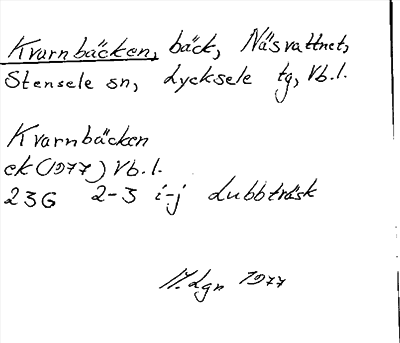 Kvarnbäcken, bäck, Näsvattnet,
Stensele sn, Lycksele tg, Vb.l.
Kvarnbäcken
ek (1977) Vb.l.
23G 2-3 i-j Lubbträsk
Lgn 1977